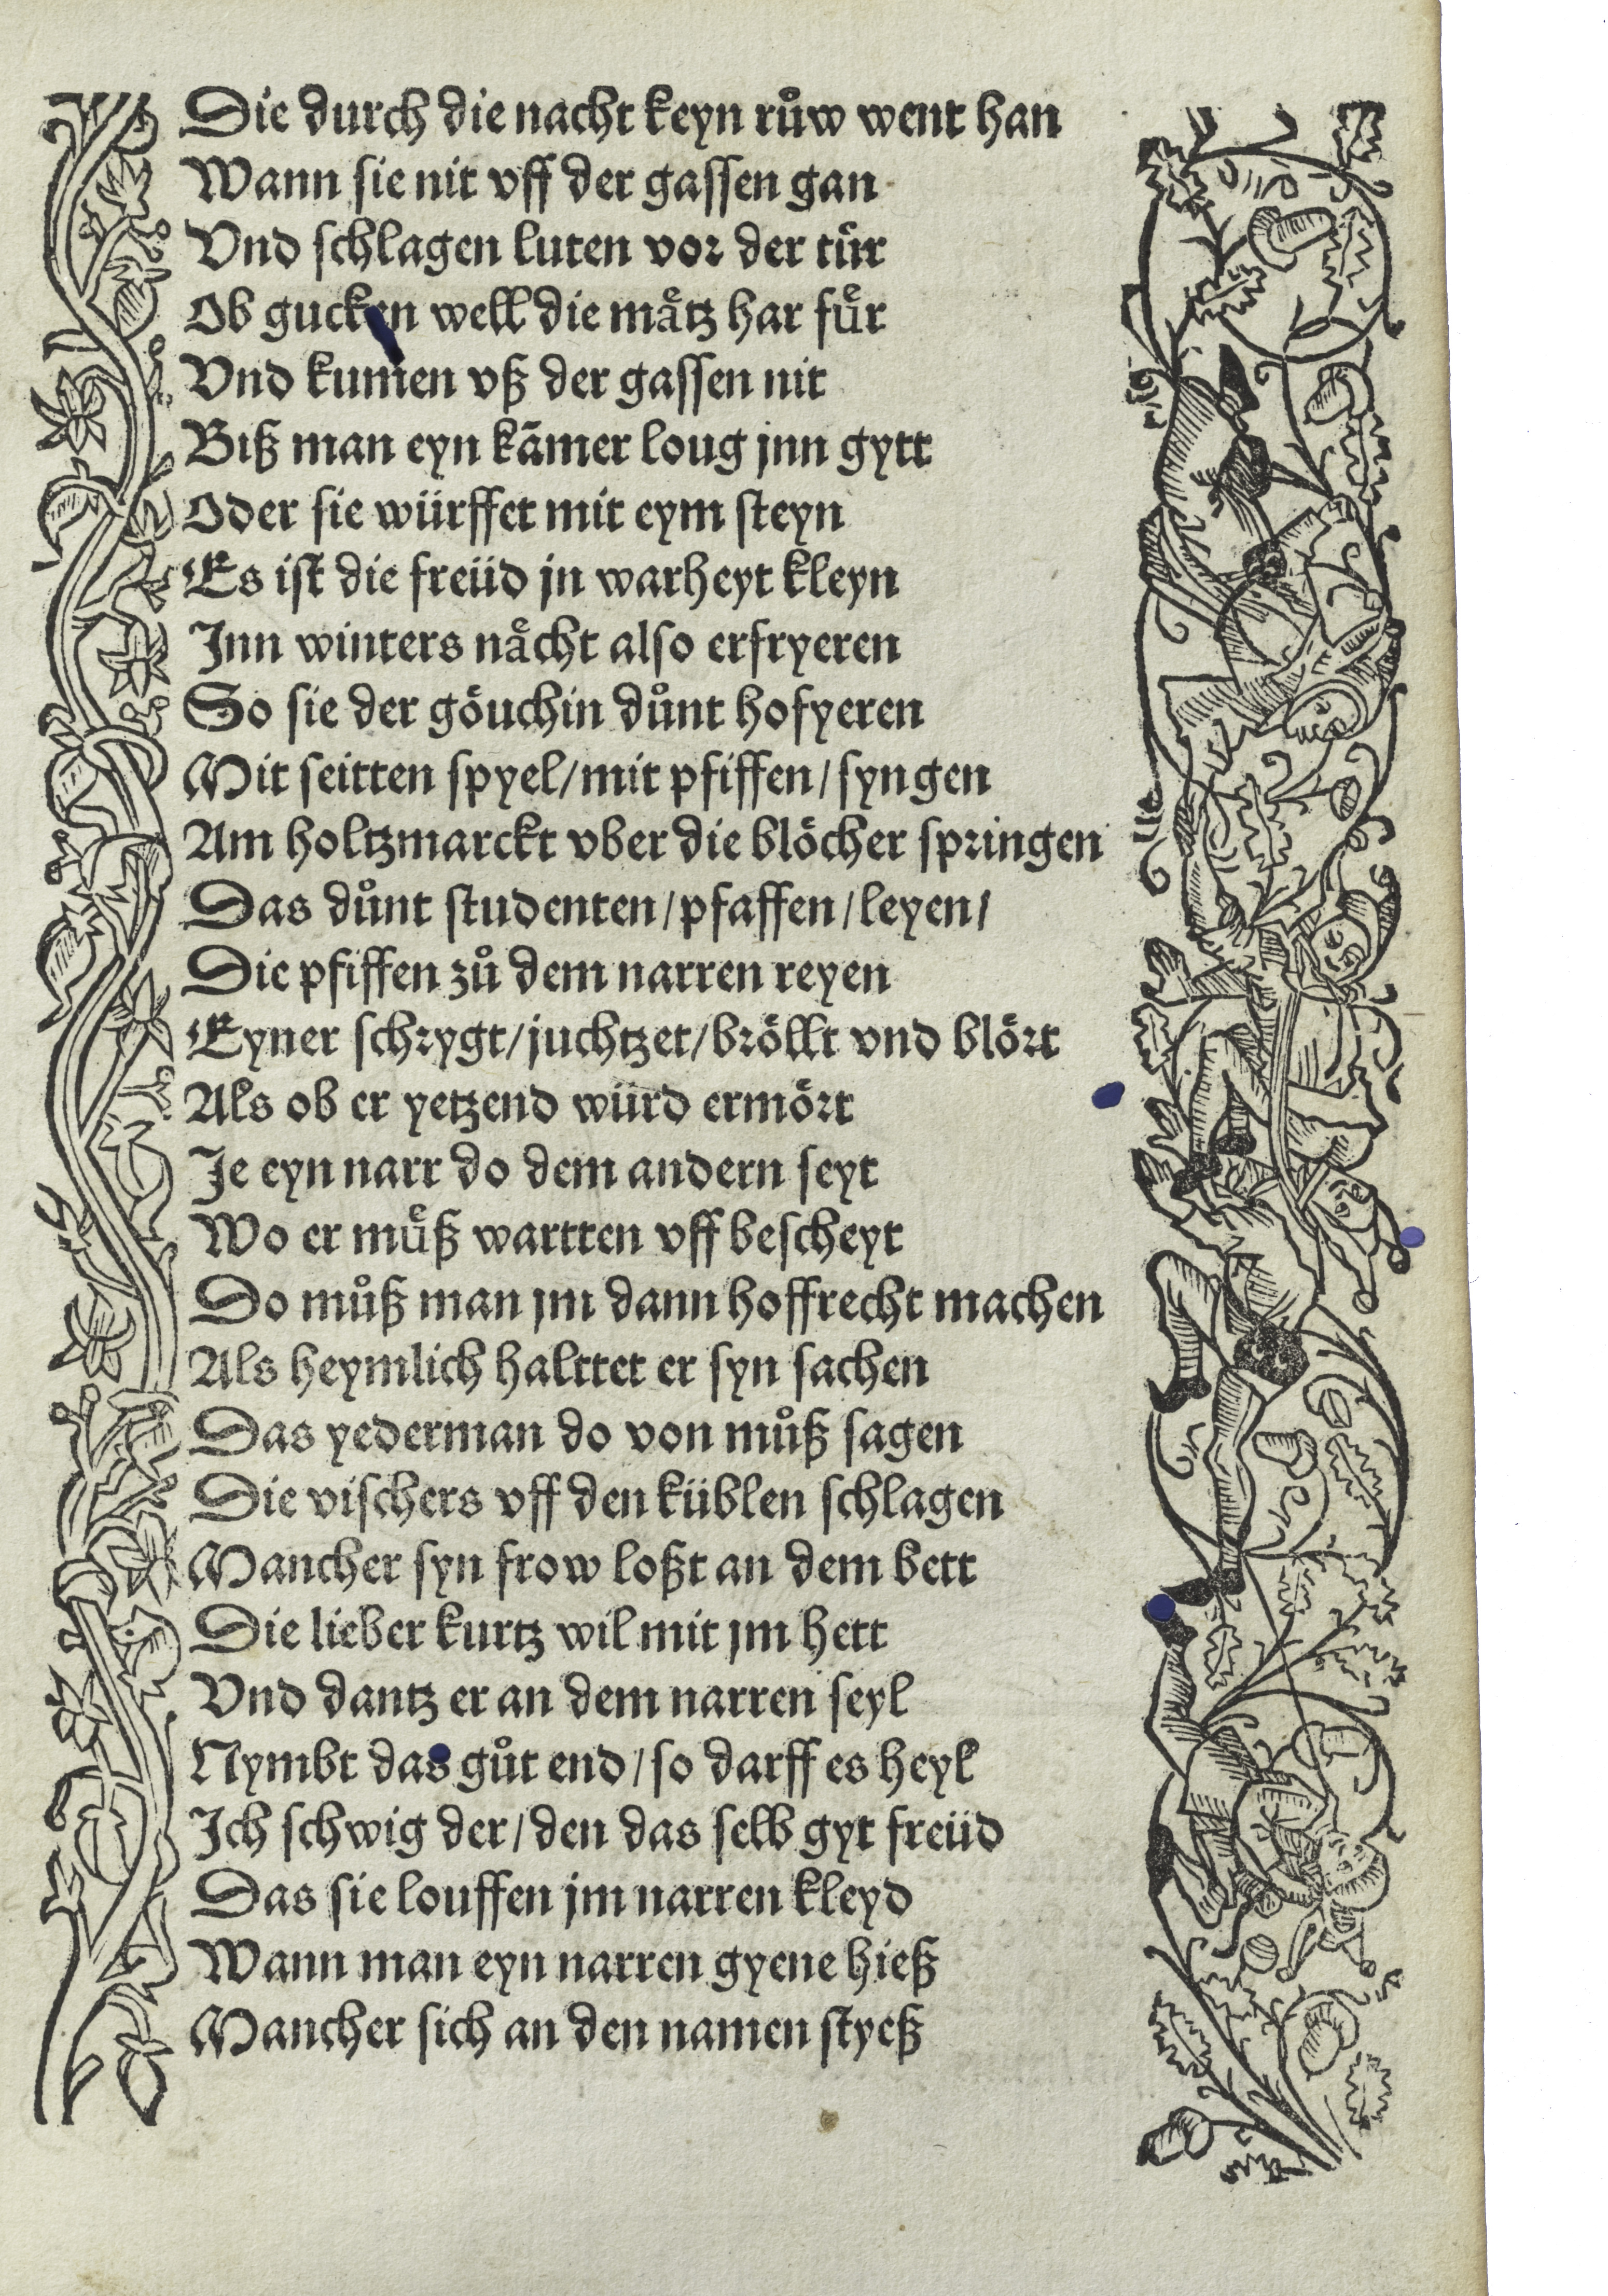 Die durch die nacht keyn růw went han
Wann sie nit vff der gassen gan
Vnd schlagen luten vor der tür
Ob gucken well die mätz har für
Vnd kumen vß der gassen nit
Biß man eyn kāmer loug jnn gytt
Oder sie würffet mit eym steyn
Es ist die freüd jn warheyt kleyn
Jnn winters nächt also erfryeren
So sie der göuchin důnt hofyeren
Mit seitten spyel/mit pfiffen/syngen
Am holtzmarckt vber die blöcher springen
Das důnt studenten/pfaffen/leyen/
Die pfiffen zů dem narren reyen
Eyner schrygt/juchtzet/bröllt vnd blört
Als ob er yetzend würd ermört
Je eyn narr do dem andern seyt
Wo er müß wartten vff bescheyt
Do můß man jm dann hoffrecht machen
Als heymlich halttet er syn sachen
Das yederman do von můß sagen
Die vischers vff den küblen schlagen
Mancher syn frow loßt an dem bett
Die lieber kurtz wil mit jm hett
Vnd dantz er an dem narren seyl
Nymbt das gůt end/so darff es heyl
Ich schwig der/den das selb gyt freüd
Das sie louffen jm narren kleyd
Wann man eyn narren gyene hieß
Mancher sich an den namen styeß